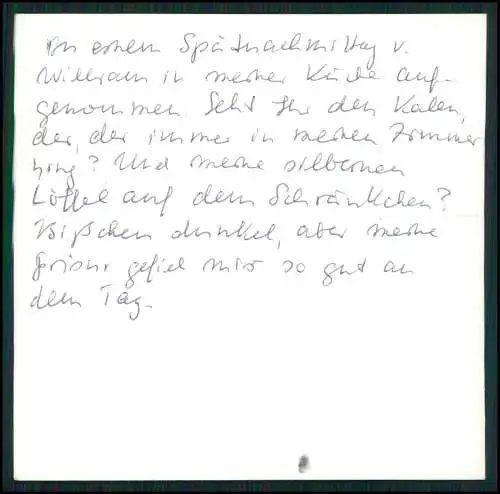 An einem Spätnachmittag v.
William in meiner Küche auf-
genommen. Seht Ihr den Kalen,
der, der immer in meinem Zimmer
hing? Und meine silbernen
Löffel auf dem Schränkchen?
Bißchen dunkel, aber meine
Frisur gefiel mir so gut an
dem Tag.